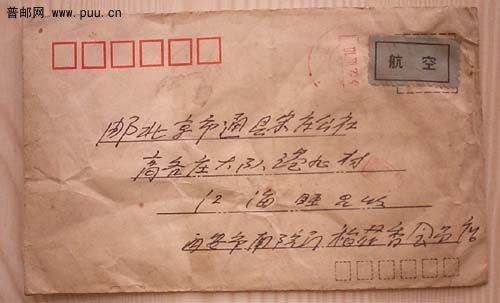 普邮网
www.puu.cn
航 空
邮北京市通县宋庄公社
高各庄大队村
江 海 旺 兄收
西安市南院门稻花香